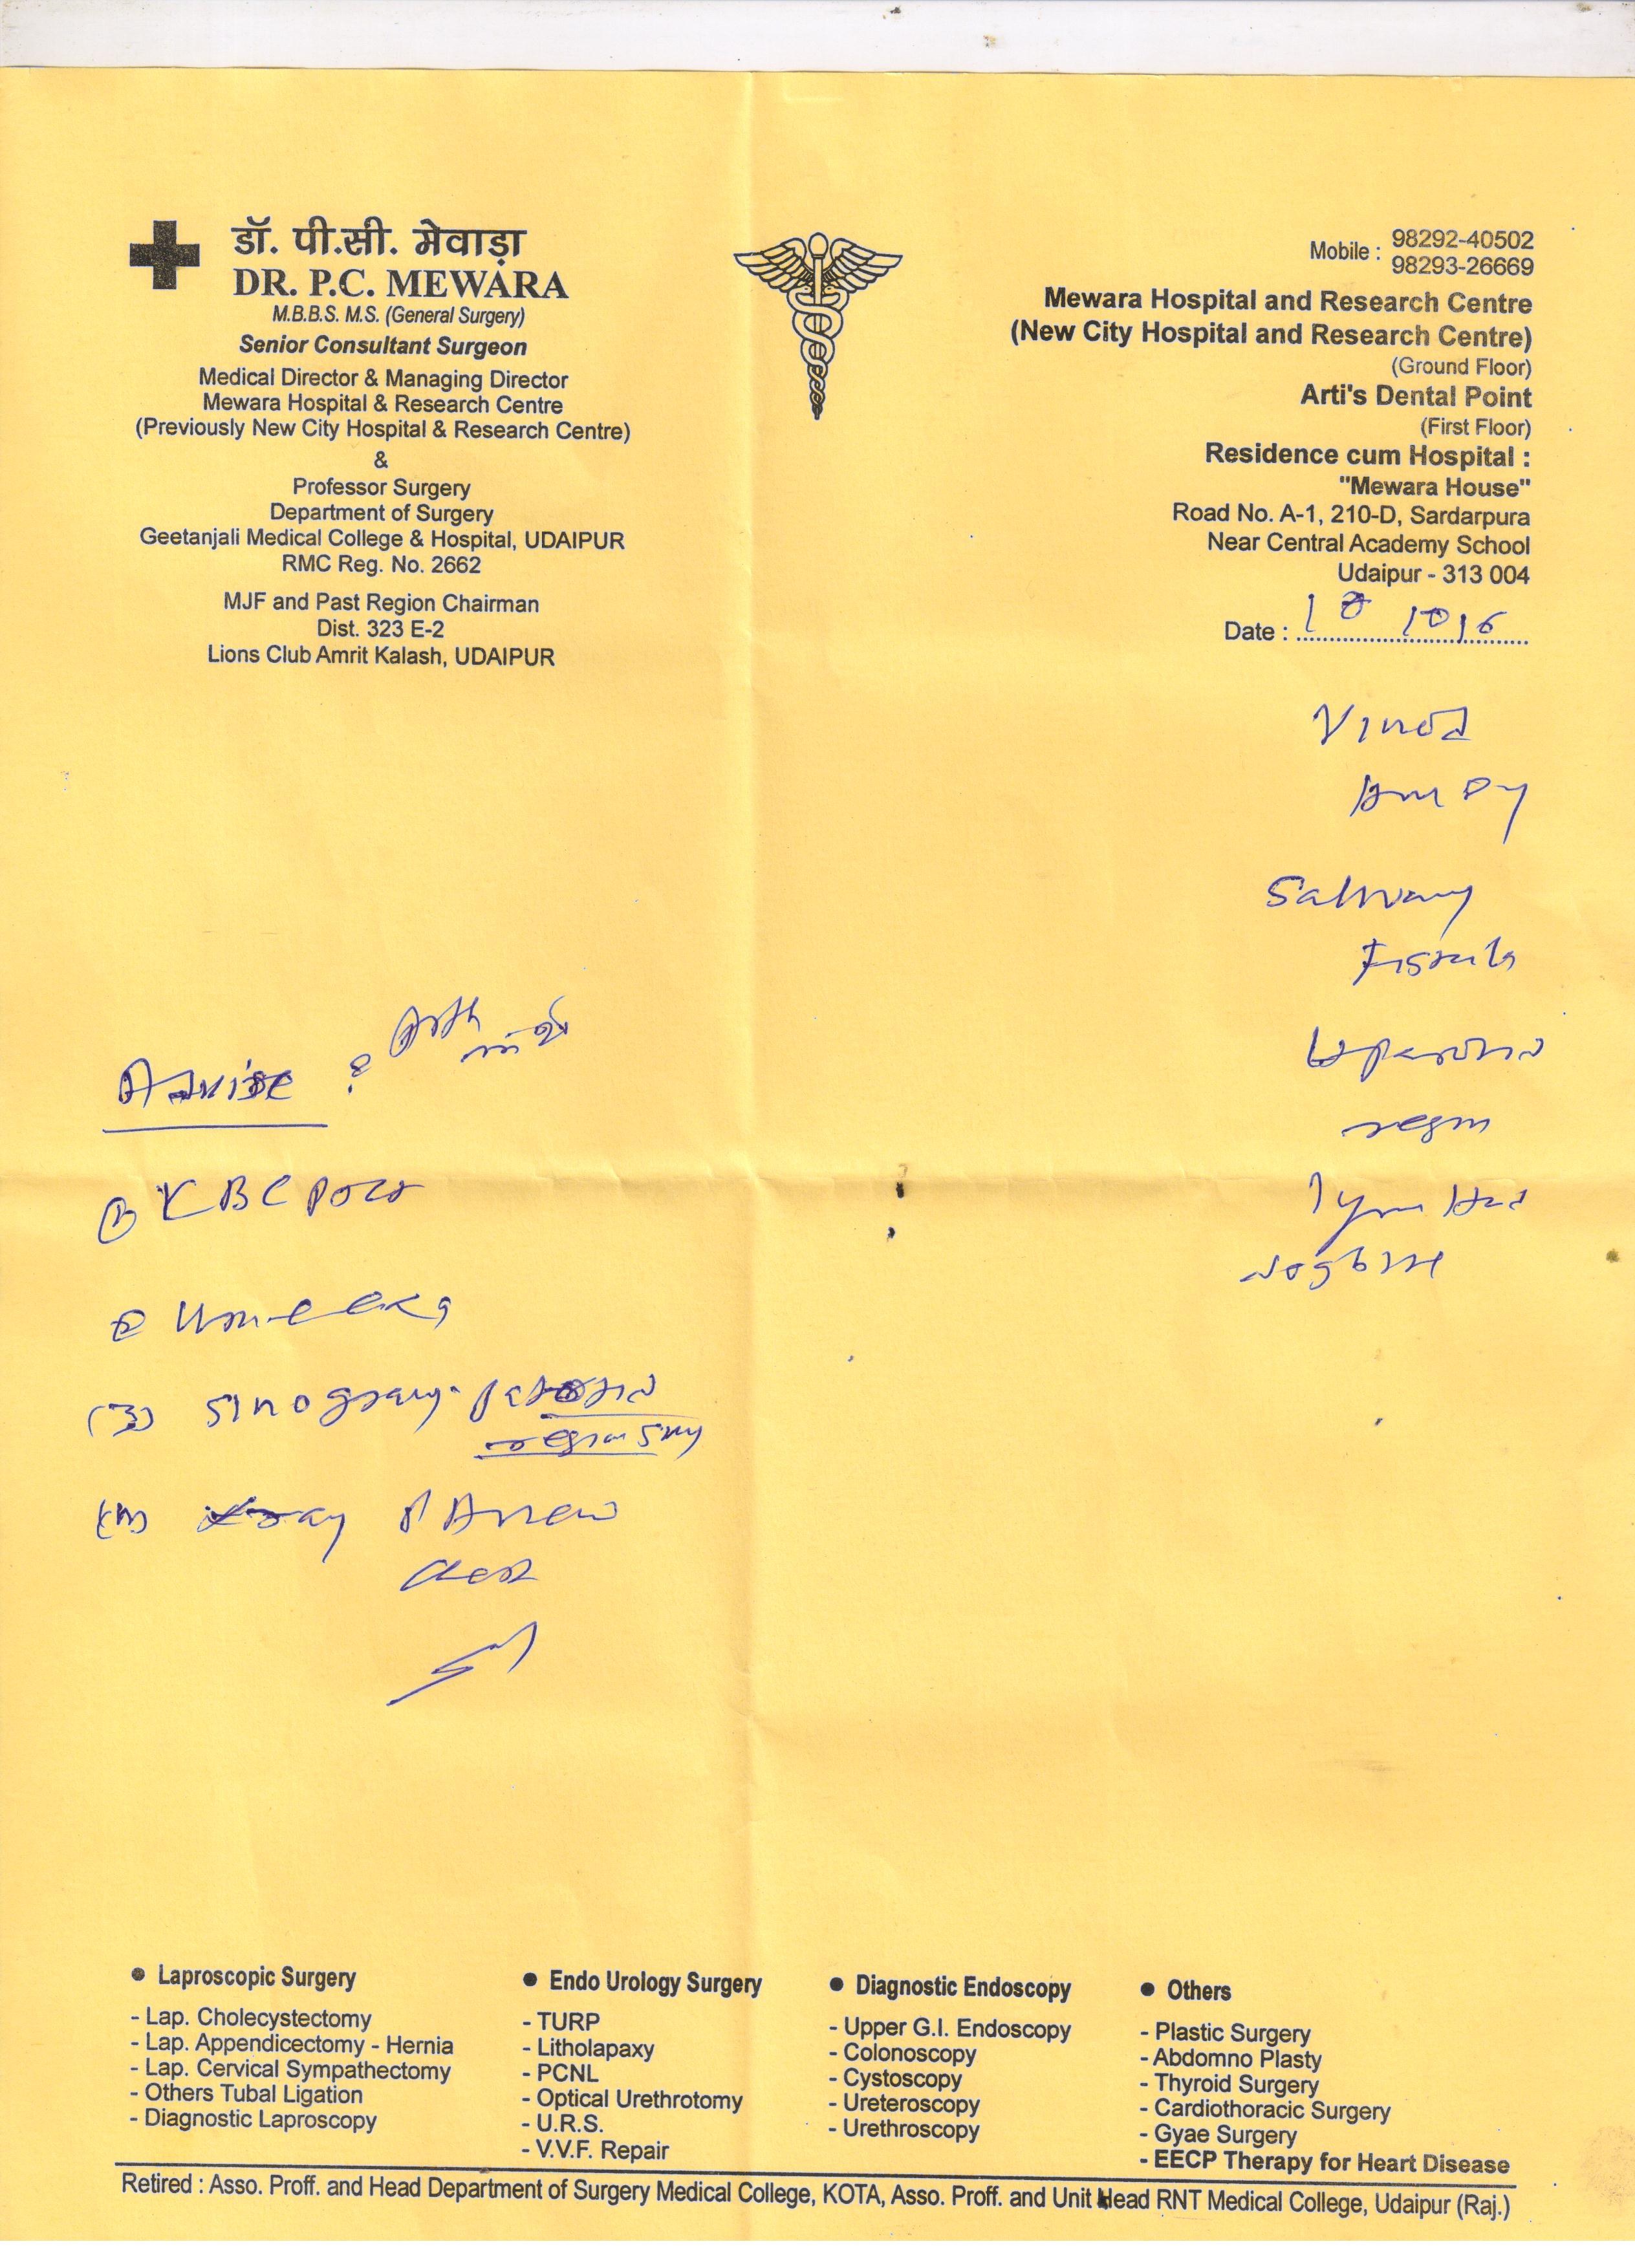 डॉ. पी.सी. मेवाड़ा
DR. P.C. MEWARA
M.B.B.S. M.S. (General Surgery)
Senior Consultant Surgeon
Medical Director & Managing Director
Mewara Hospital & Research Centre
(Previously New City Hospital & Research Centre)
&
Professor Surgery
Department of Surgery
Geetanjali Medical College & Hospital, UDAIPUR
RMC Reg. No. 2662
MJF and Past Region Chairman
Dist. 323 E-2
Lions Club Amrit Kalash, UDAIPUR
Mobile : 98292-40502
98293-26669
Mewara Hospital and Research Centre
(New City Hospital and Research Centre)
(Ground Floor)
Arti's Dental Point
(First Floor)
Residence cum Hospital :
"Mewara House"
Road No. A-1, 210-D, Sardarpura
Near Central Academy School
Udaipur - 313 004
Date :
Vinod
Salivary
Fistula
parotid
region
Advise :
CBC
(3) Sinogram parotid
region
Xray
chest
● Laproscopic Surgery
- Lap. Cholecystectomy
- Lap. Appendicectomy - Hernia
- Lap. Cervical Sympathectomy
- Others Tubal Ligation
- Diagnostic Laproscopy
● Endo Urology Surgery
- TURP
- Litholapaxy
- PCNL
- Optical Urethrotomy
- U.R.S.
- V.V.F. Repair
● Diagnostic Endoscopy
- Upper G.I. Endoscopy
- Colonoscopy
- Cystoscopy
- Ureteroscopy
- Urethroscopy
● Others
- Plastic Surgery
- Abdomno Plasty
- Thyroid Surgery
- Cardiothoracic Surgery
- Gyae Surgery
- EECP Therapy for Heart Disease
Retired : Asso. Proff. and Head Department of Surgery Medical College, KOTA, Asso. Proff. and Unit Head RNT Medical College, Udaipur (Raj.)